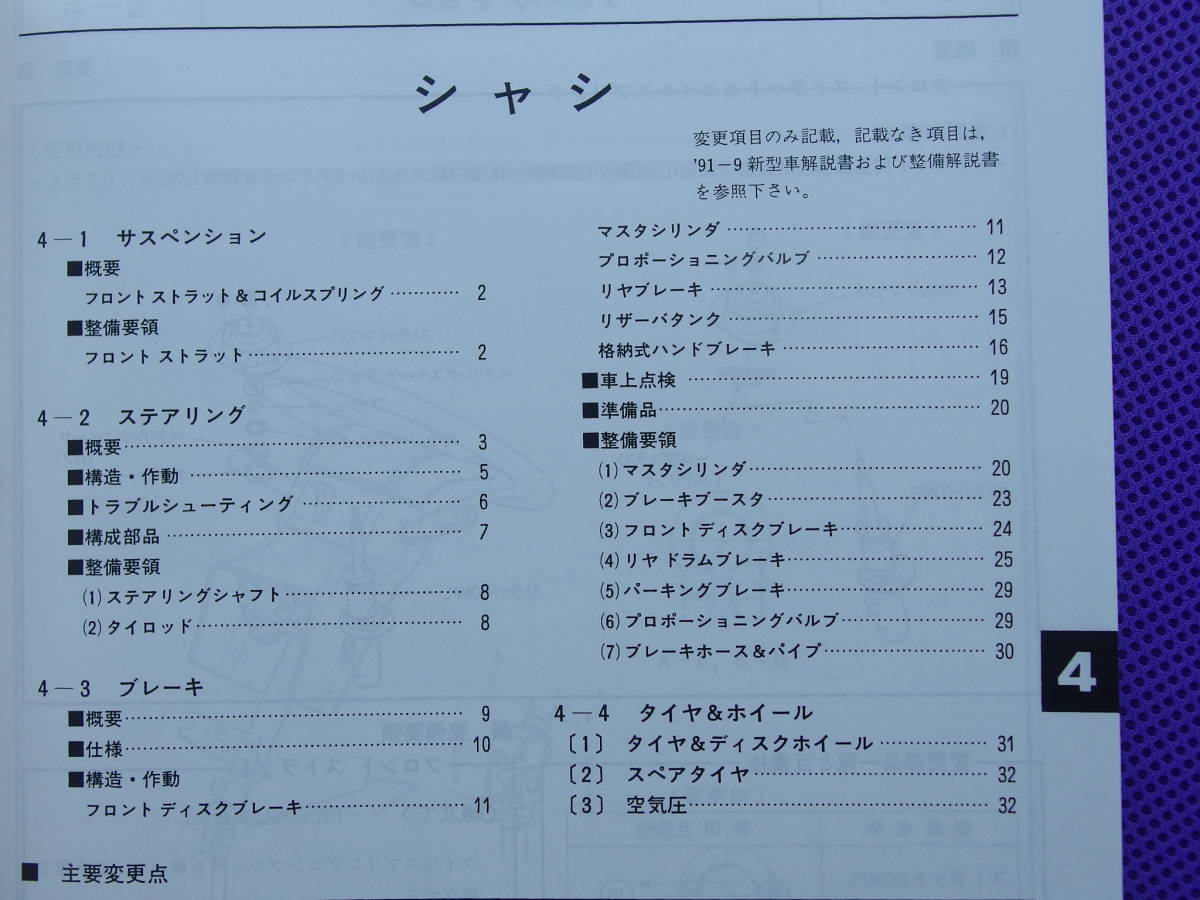 シャシ
変更項目のみ記載，記載なき項目は，
'91－9新型車解説書および整備解説書
を参照下さい。
4－1 サスペンション
■概要
フロント ストラット＆コイルスプリング ………… 2
■整備要領
フロント ストラット………………………………… 2
4－2 ステアリング
■概要…………………………………………………… 3
■構造・作動 …………………………………………… 5
■トラブルシューティング …………………………… 6
■構成部品 ……………………………………………… 7
■整備要領
(1)ステアリングシャフト…………………………… 8
(2)タイロッド………………………………………… 8
4－3 ブレーキ
■概要…………………………………………………… 9
■仕様…………………………………………………… 10
■構造・作動
フロント ディスクブレーキ………………………… 11
マスタシリンダ ……………………………………… 11
プロポーショニングバルブ ………………………… 12
リヤブレーキ ………………………………………… 13
リザーバタンク ……………………………………… 15
格納式ハンドブレーキ ……………………………… 16
■車上点検 ……………………………………………… 19
■準備品………………………………………………… 20
■整備要領
(1)マスタシリンダ…………………………………… 20
(2)ブレーキブースタ………………………………… 23
(3)フロント ディスクブレーキ……………………… 24
(4)リヤ ドラムブレーキ……………………………… 25
(5)パーキングブレーキ……………………………… 29
(6)プロポーショニングバルブ……………………… 29
(7)ブレーキホース＆パイプ………………………… 30
4－4 タイヤ＆ホイール
〔1〕 タイヤ＆ディスクホイール …………… 31
〔2〕 スペアタイヤ…………………………… 32
〔3〕 空気圧…………………………………… 32
4
■ 主要変更点